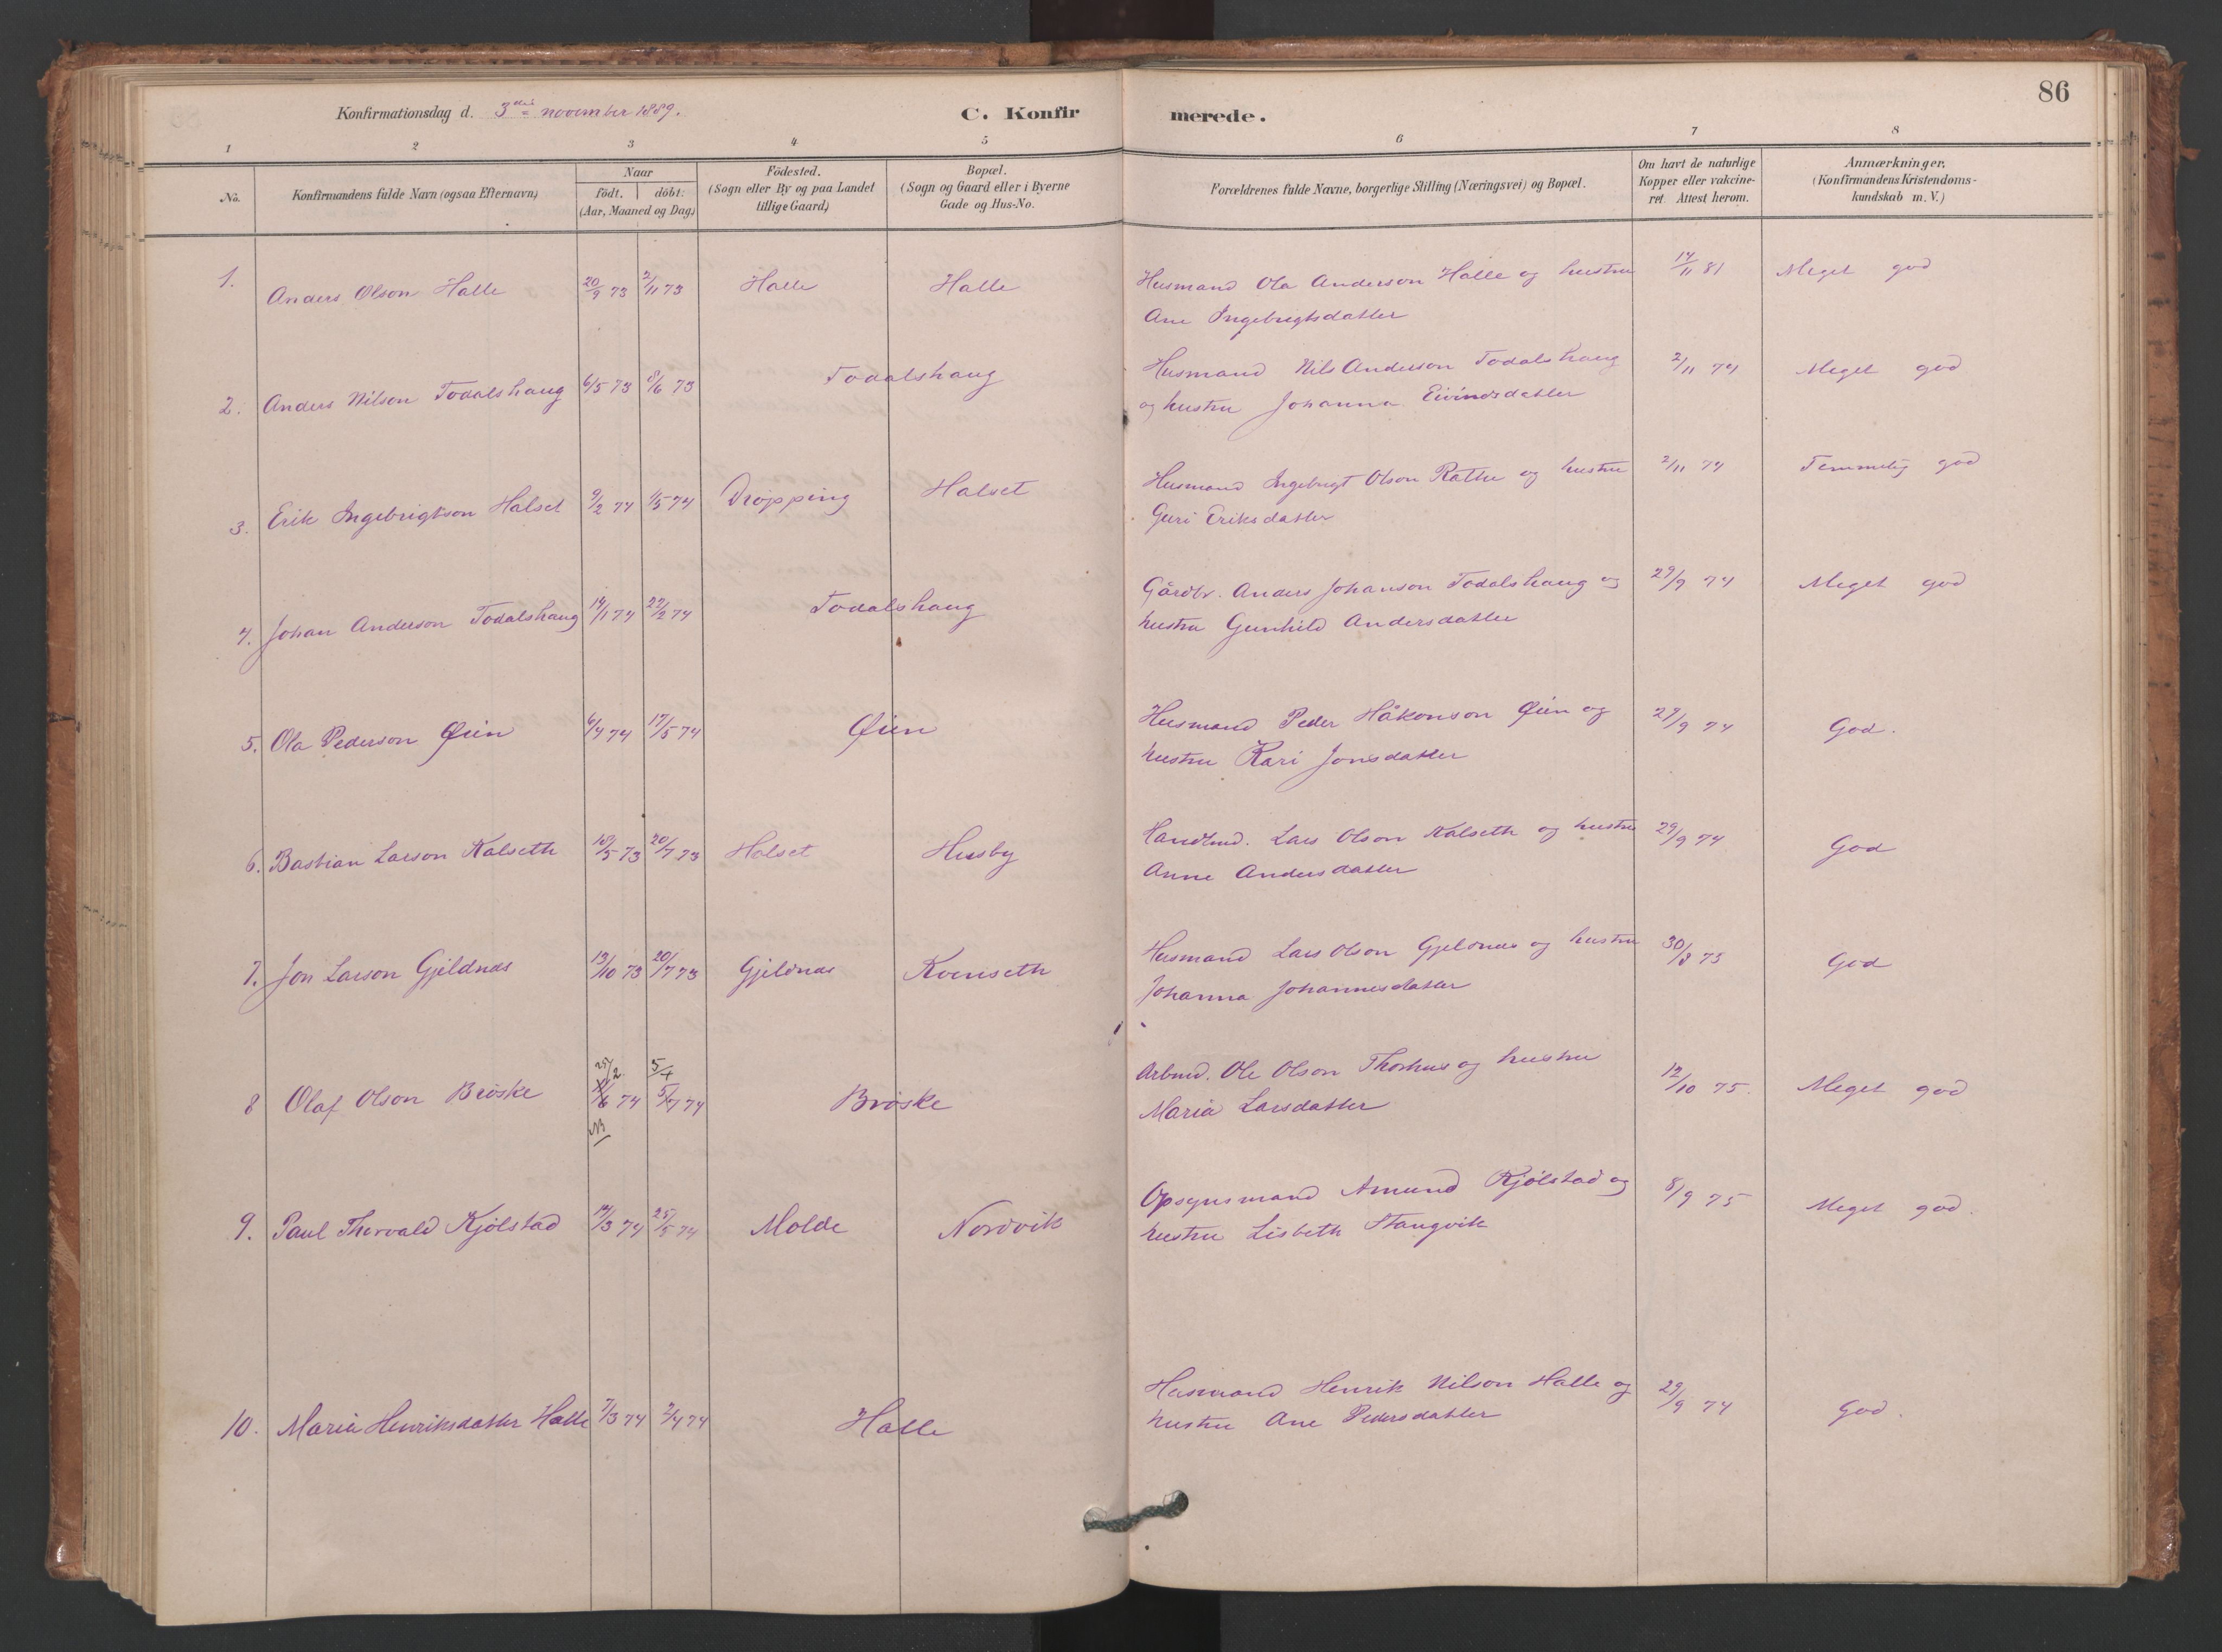 86
Konfirmationsdag d. 3die november 1889. C. Konfirmerede.
1 2 3 4 5 6 7 8
No. Konfirmandens fulde Navn (ogsaa Efternavn) Naar födt. döbt. (Aar, Maaned og Dag) Födested. (Sogn eller By og paa Landet tillige Gaard) Bopæl. (Sogn og Gaard eller i Byerne Gade og Hus-No. Forældrenes fulde Navne, borgerlige Stilling (Næringsvei) og Bopæl. Om havt de naturlige Kopper eller vakcineret. Attest herom. Anmærkninger. (Konfirmandens Kristendomskundskab m. V.)
1. Anders Olson Halle 20/9 73 2/11 73 Halle Halle Husmand Ola Anderson Halle og hustru 14/11 81 Meget god
Ane Ingebrigtsdatter
2. Anders Nilson Todalshaug 6/5 73 8/6 73 Todalshaug Husmand Nils Anderson Todalshaug 2/11 74 Meget god
og hustru Johanna Eivindsdatter
3. Erik Ingebrigtson Halset 9/2 74 1/5 74 Drøpping Halset Husmand Ingebrigt Olson Röthe og hustru 2/11 74 Temmelig god
Guri Eriksdatter
4. Johan Anderson Todalshaug 14/1 74 22/2 74 Todalshaug Gårdbr. Anders Johanson Todalshaug og 29/9 74 Meget god
hustru Gunhild Andersdatter
5. Ola Pederson Øien 6/4 74 17/5 74 Øien Husmand Peder Håkonson Øien og 29/9 74 God.
hustru Kari Jonsdatter
6. Bastian Larson Kalseth 18/5 73 20/7 73 Halset Husby Handlmd. Lars Olson Kalseth og hustru 29/9 74 God
Anne Andersdatter
7. Jon Larson Gjeldnæs 13/10 73 20/7 73 Gjeldnæs Kvenseth Husmand Lars Olson Gjeldnæs og hustru 30/8 75 God
Johanna Johannesdatter
25/2. 5/4
8 Olaf Olson Brøske /6 74 5/7 74 Brøske Arbmd. Ole Olson Thorhus og hustru 12/10 75. Meget god
NB Maria Larsdatter
9. Paul Thorvald Kjølstad 14/3 74 25/5 74 Molde Nordvik Opsynsmand Amund Kjølstad og 8/9 75 Meget god.
hustru Lisbeth Stangvik
10. Maria Henriksdatter Halle 7/3 74 2/4 74 Halle Husmand Henrik Nilson Halle og 29/9 74 God.
hustru Ane Pedersdatter